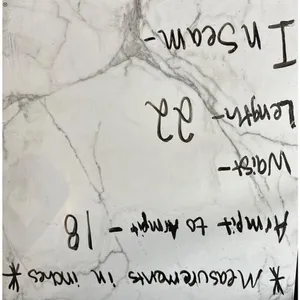 * Measurements in inches *
Armpit to Armpit - 18
Waist -
Length - 22
Inseam -